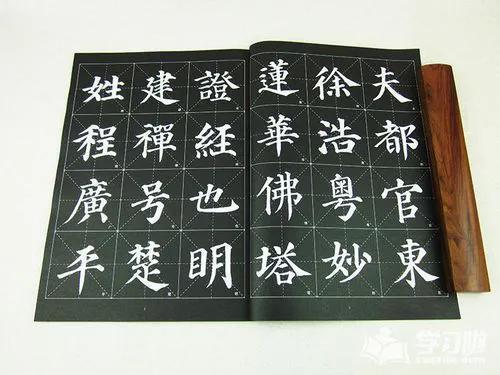 夫都官東
徐浩粤妙
蓮華佛塔
證経也明
建禪号楚
姓程廣平
学习啦